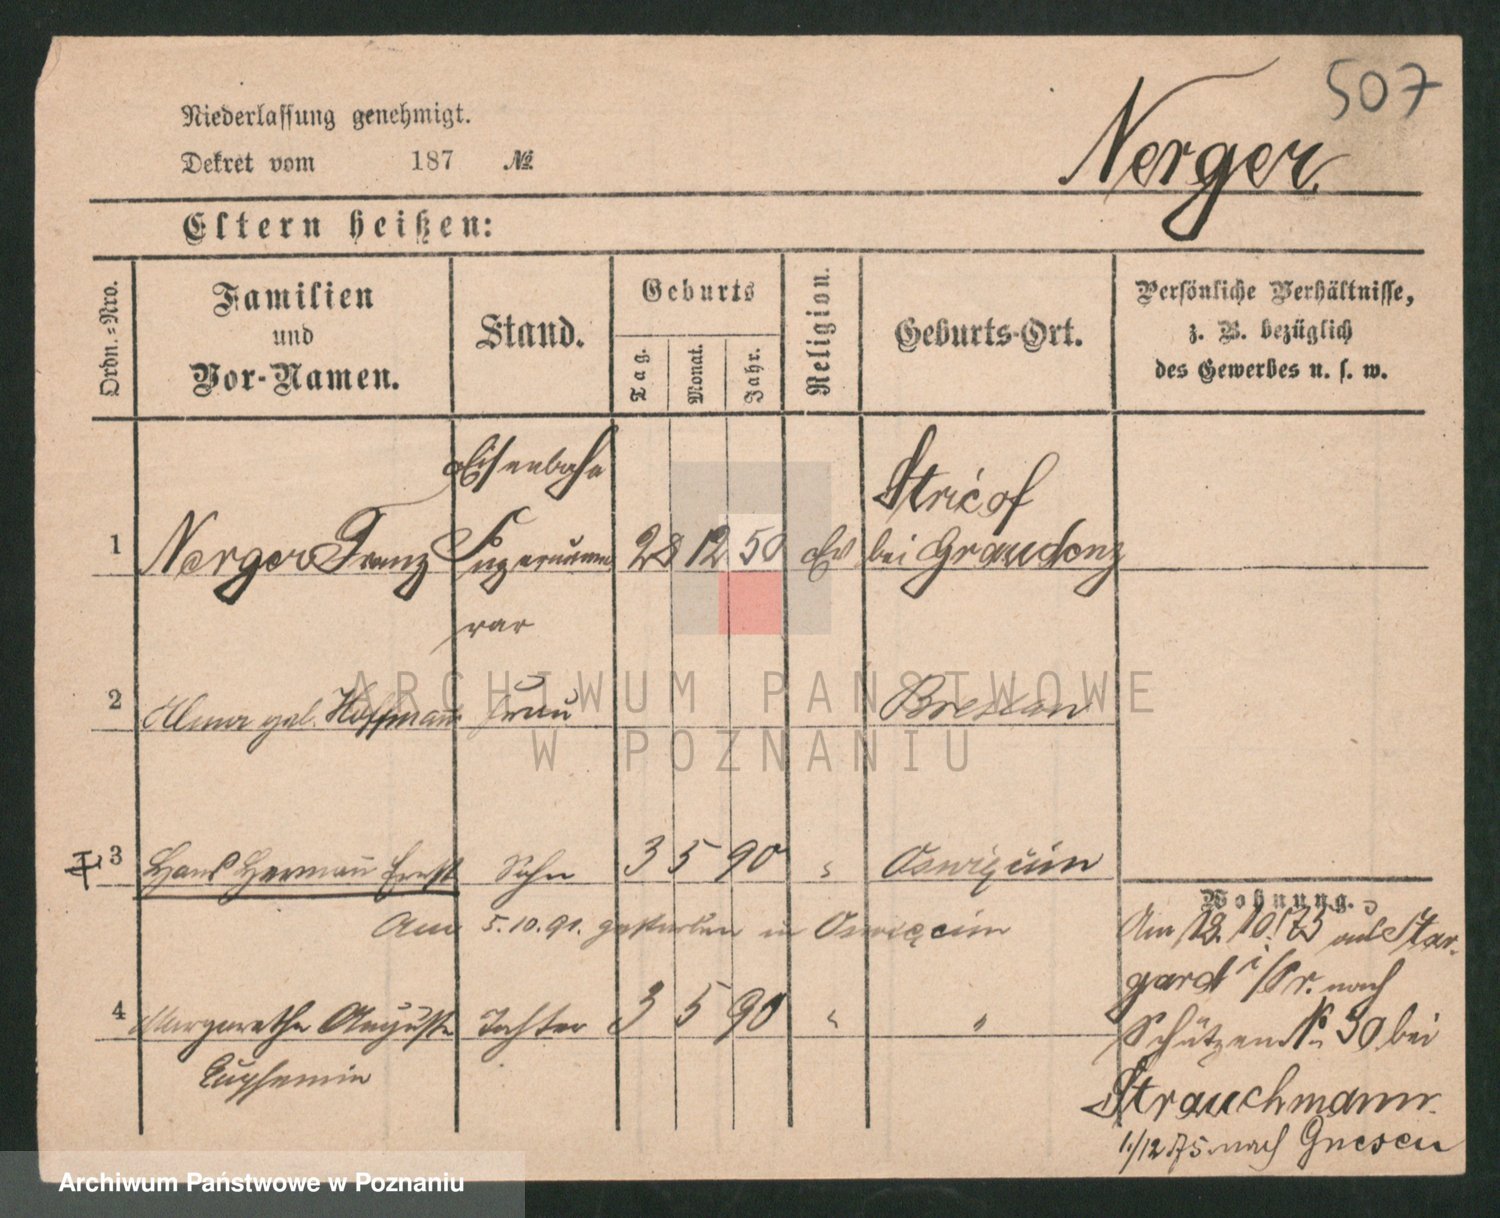 507
Niederlassung genehmigt.
Nerger.
Dekret vom 187 №
Eltern heißen:
Ordn.-Nro.
Familien
und
Vor-Namen.
Stand.
Geburts
Tag.
Monat.
Jahr.
Religion.
Geburts-Ort.
Persönliche Verhältnisse,
z. B. bezüglich
des Gewerbes u. s. w.
Eisenbahn
1 Nerger Franz Supernume 28 12 50 Ev bei Graudenz
rar
2 Alma geb. Hoffmann Frau Breslau
3 Hans Hermann Ernst Sohn 3 5 90 " Oswięcim
Am 5.10.91. gestorben in Oswięcim
4 Margarethe Auguste Tochter 3 5 90 " "
Euphemia
Wohnung.
Am 18. 10. 73 aus Star-
gard i/Pr. nach
Schützen № 30 bei
Strauchmann.
1/12 75 nach Gnesen
ARCHIWUM PAŃSTWOWE
W POZNANIU
Archiwum Państwowe w Poznaniu